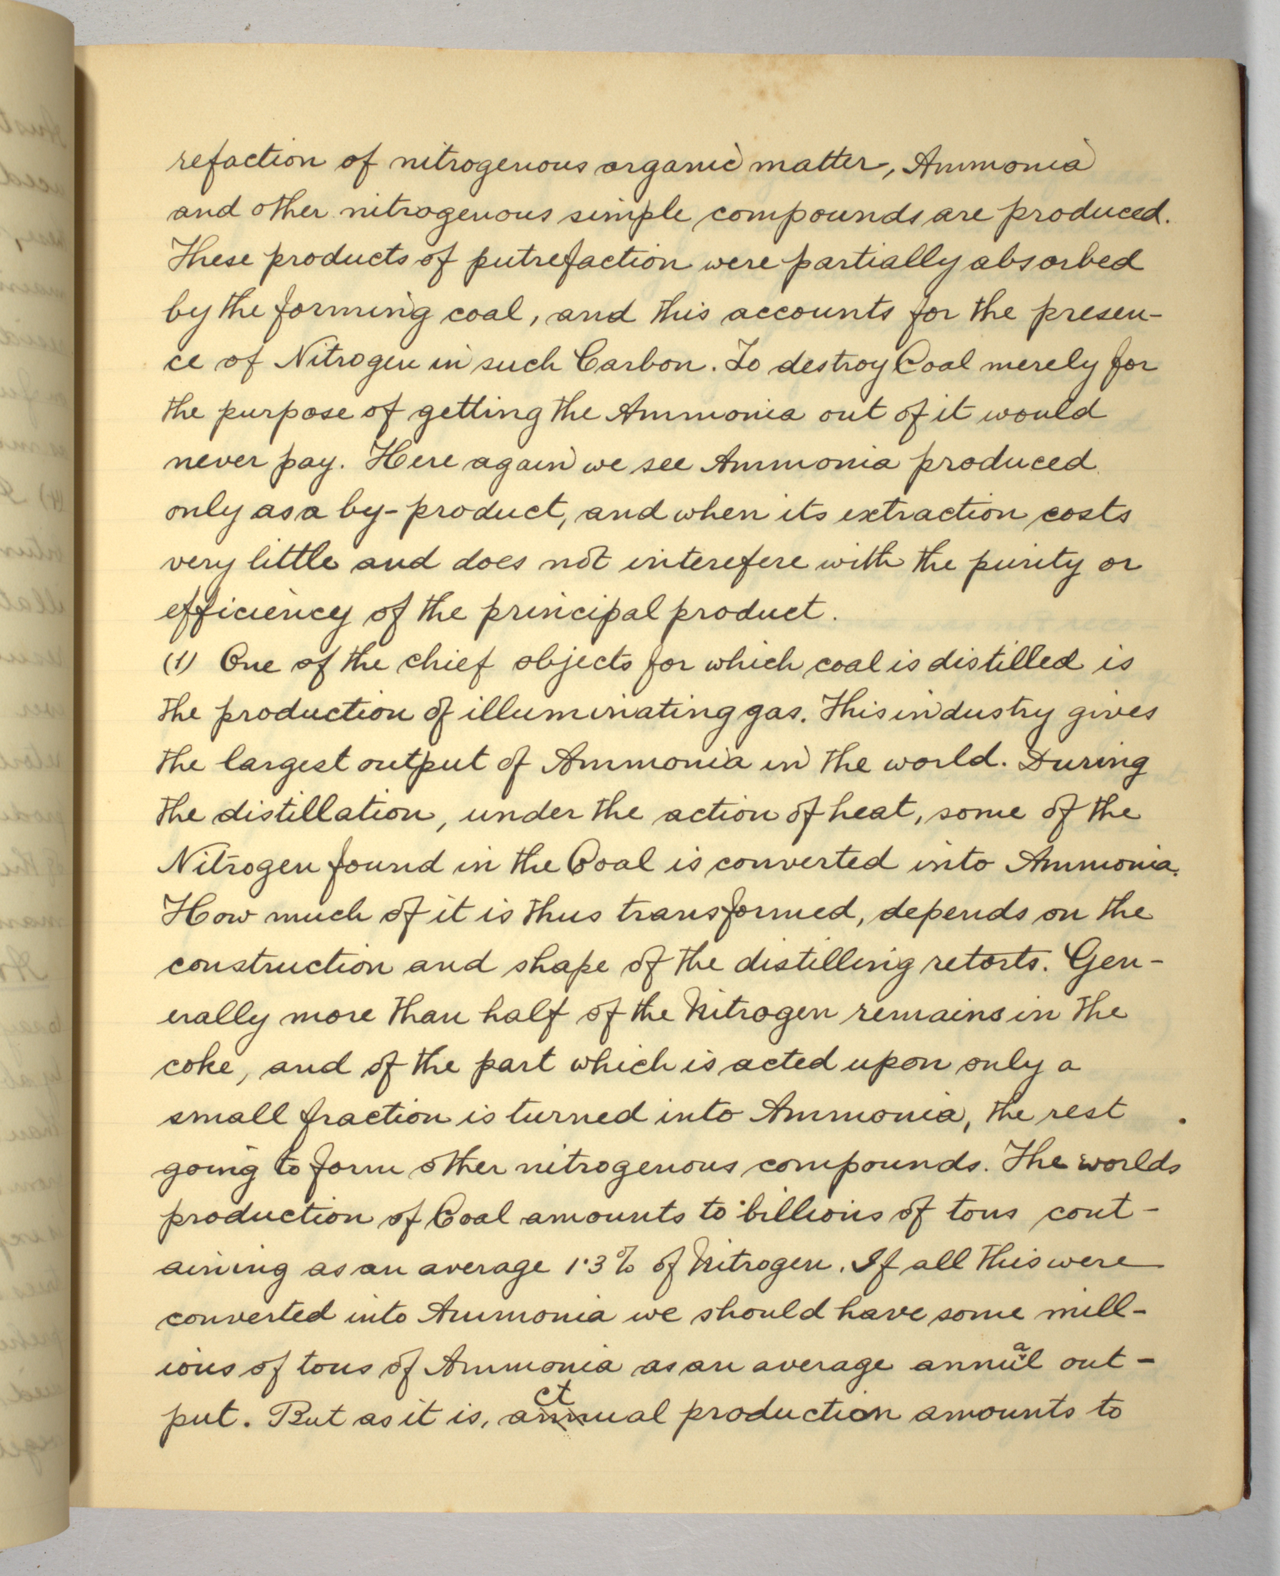 refaction of nitrogenous organic matter, Ammonia
and other nitrogenous simple compounds are produced.
These products of putrefaction were partially absorbed
by the forming coal, and this accounts for the presen-
ce of Nitrogen in such Carbon. To destroy Coal merely for
the purpose of getting the Ammonia out of it would
never pay. Here again we see Ammonia produced
only as a by-product, and when its extraction costs
very little and does not interefere with the purity or
efficiency of the principal product.
(1) One of the chief objects for which coal is distilled is
the production of illuminating gas. This industry gives
the largest output of Ammonia in the world. During
the distillation, under the action of heat, some of the
Nitrogen found in the Coal is converted into Ammonia.
How much of it is thus transformed, depends on the
construction and shape of the distilling retorts. Gen-
erally more than half of the Nitrogen remains in the
coke, and of the part which is acted upon only a
small fraction is turned into Ammonia, the rest
going to form other nitrogenous compounds. The worlds
production of Coal amounts to billions of tons cont-
aining as an average 1·3% of Nitrogen. If all this were
converted into Ammonia we should have some mill-
ions of tons of Ammonia as an average annual out-
put. But as it is, actual production amounts to